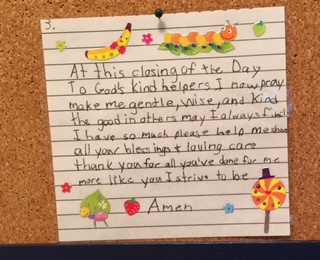 3.
At this closing of the Day
To God's kind helpers I now pray
make me gentle, wise, and kind
the good in others may I always find
I have so much please help me share
all your blessings + loving care
thank you for all you've done for me
more like you I strive to be
Amen